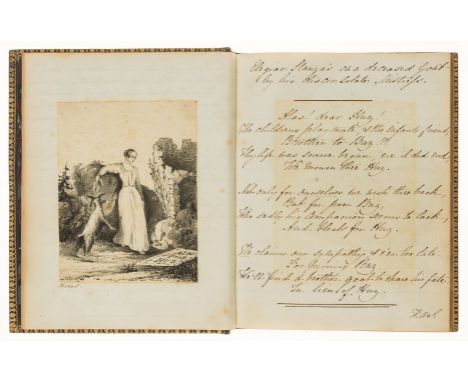 Elegiac Stanzas on a deceased Goat
by his disconsolate Mistress.
Alas! dear Huz!
The children's play-mate & the infants friend,
Brother to Buz!!!
Thy life was scarce began, ere it did end
We mourn thee Huz.
Not only for ourselves we wish thee back,
But for poor Buz,
Who sadly his Companion seems to lack,
And bleats for Huz.
He claims our sympathy, & ere too late
For pining Buz
We'll find a brother goat to share his fate
In lieu of Huz.